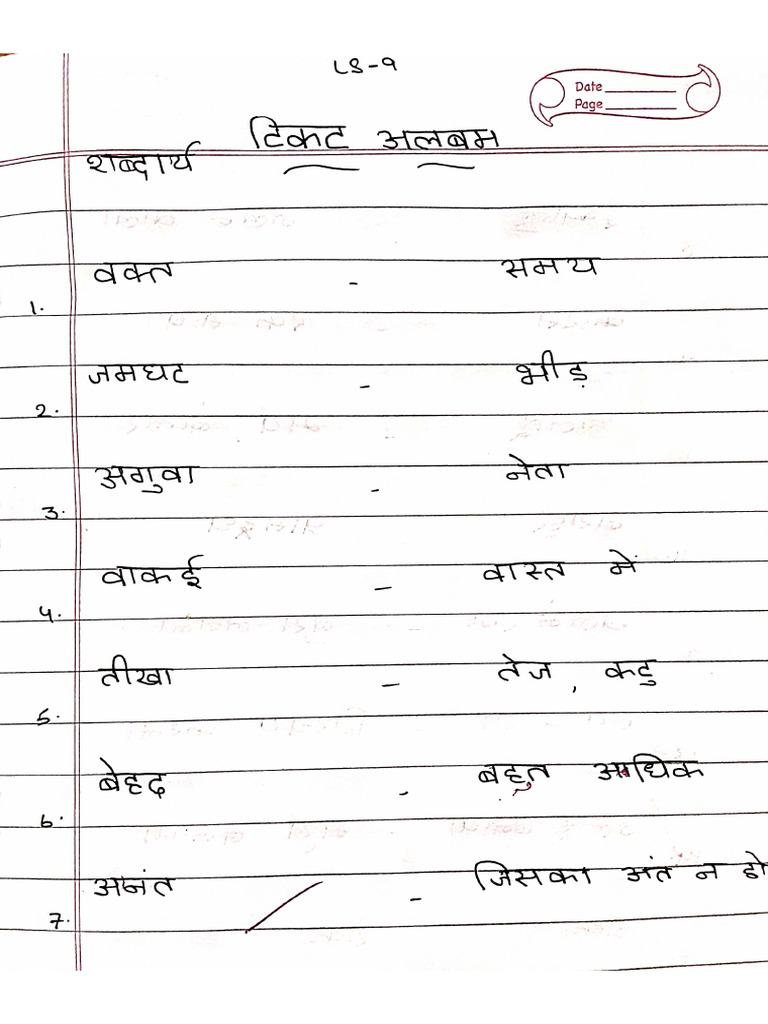 LS-9
Date
Page
टिकट अलबम
शब्दार्थ
वक्त - समय
1.
जमघट - भीड़
2.
अगुवा - नेता
3.
वाकई - वास्त में
4.
तीखा - तेज, कटु
5.
बेहद - बहुत अधिक
6.
अनंत - जिसका अंत न हो
7.